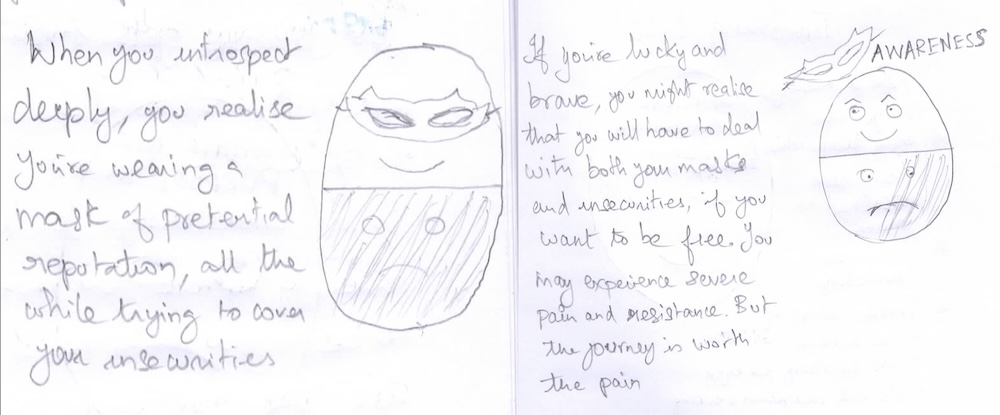 When you introspect
deeply, you realise
you're wearing a
mask of pretential
reputation, all the
while trying to cover
your insecurities
If you're lucky and
brave, you might realise
that you will have to deal
with both your masks
and insecurities, if you
want to be free. You
may experience severe
pain and resistance. But
the journey is worth
the pain
AWARENESS